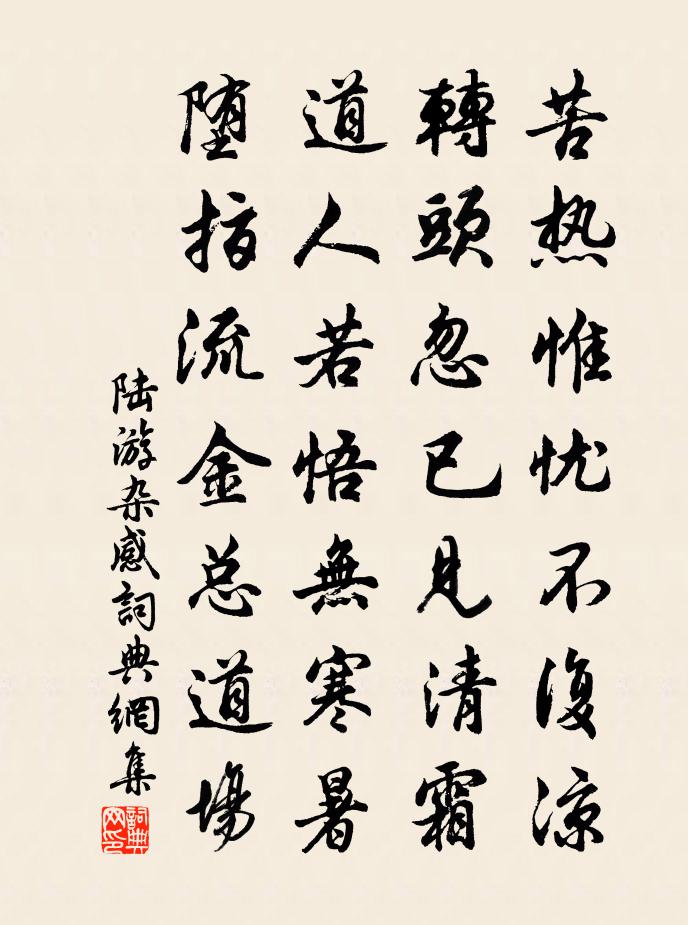 苦热惟忧不復凉
轉頭忽已見清霜
道人若悟無寒暑
堕指流金总道場
陆游杂感詞典網集
詞典
网印